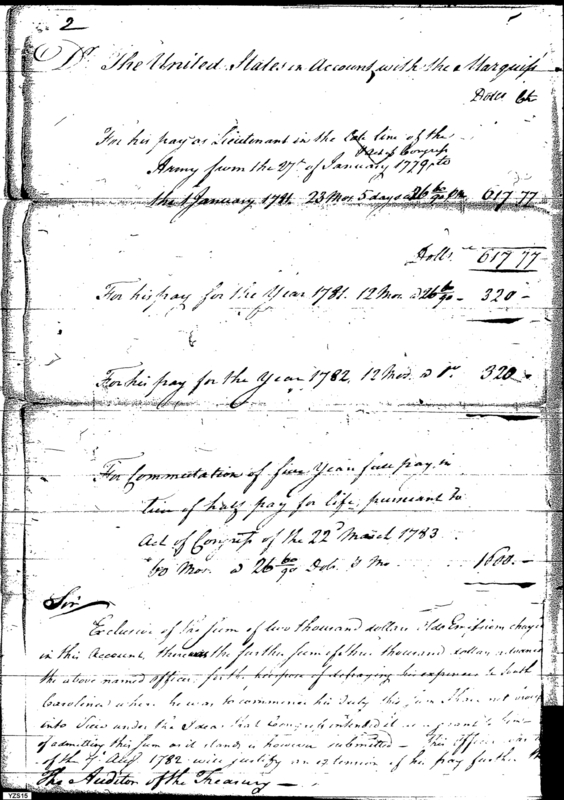 2
Dr The United States in Account with the Marquiss
Dolls
For his pay as Lieutenant in the line of the
Act of Congress
Army from the 27th of January 1779, to
the 1 January 1781. 23 Mos. 5 days a 26 60/90 617 77
Dolls 617 77
For his pay for the Year 1781. 12 Mos. a 26 60/90 - 320 -
For his pay for the Year 1782, 12 Mos. a Do. 320 -
For Commutation of five Years full pay in
lieu of half pay for life, pursuant to
Act of Congress of the 22d March 1783
60 Mos. a 26 60/90 Dols. Mo 1600. -
Sir
Exclusive of the sum of two thousand dollars Old Emission charged
in this Account, the further sum of three thousand dollars advanced
the above named officer for the purpose of defraying his expences to South
Carolina where he was to commence his Duty this sum I have not
into View under the Idea that Congress intended it as a grant to him
of admitting this sum as it stands is however submitted - This Officer
of the 7 Augt 1782 will justify an extension of his pay further
The Auditor of the Treasury -
YZS15